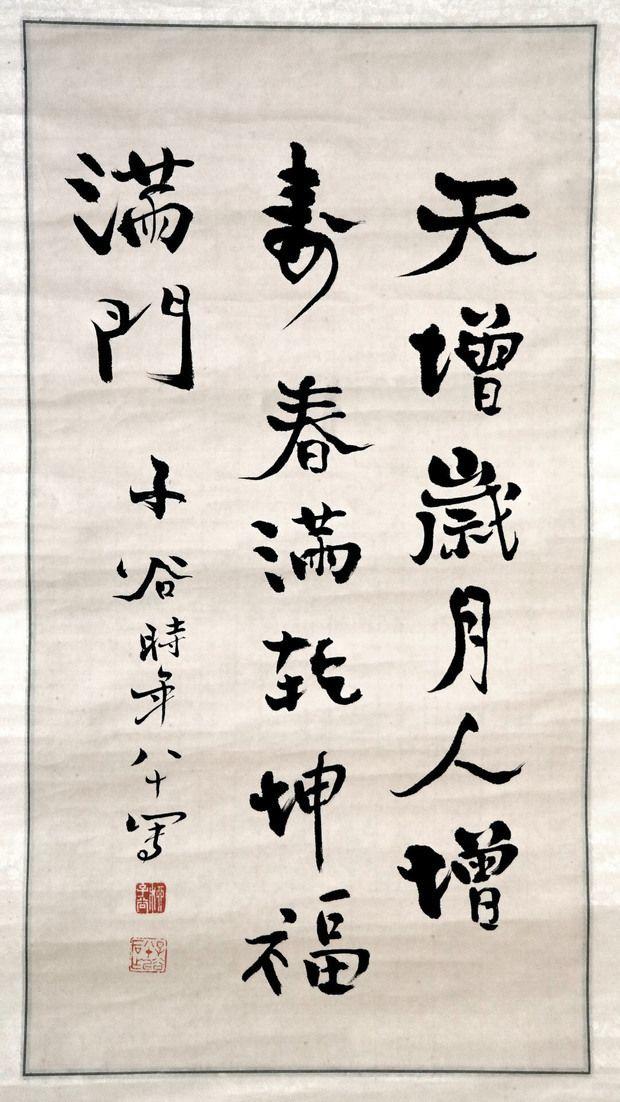 天增歲月人增
壽春滿乾坤福
滿門 子谷時年八十寫